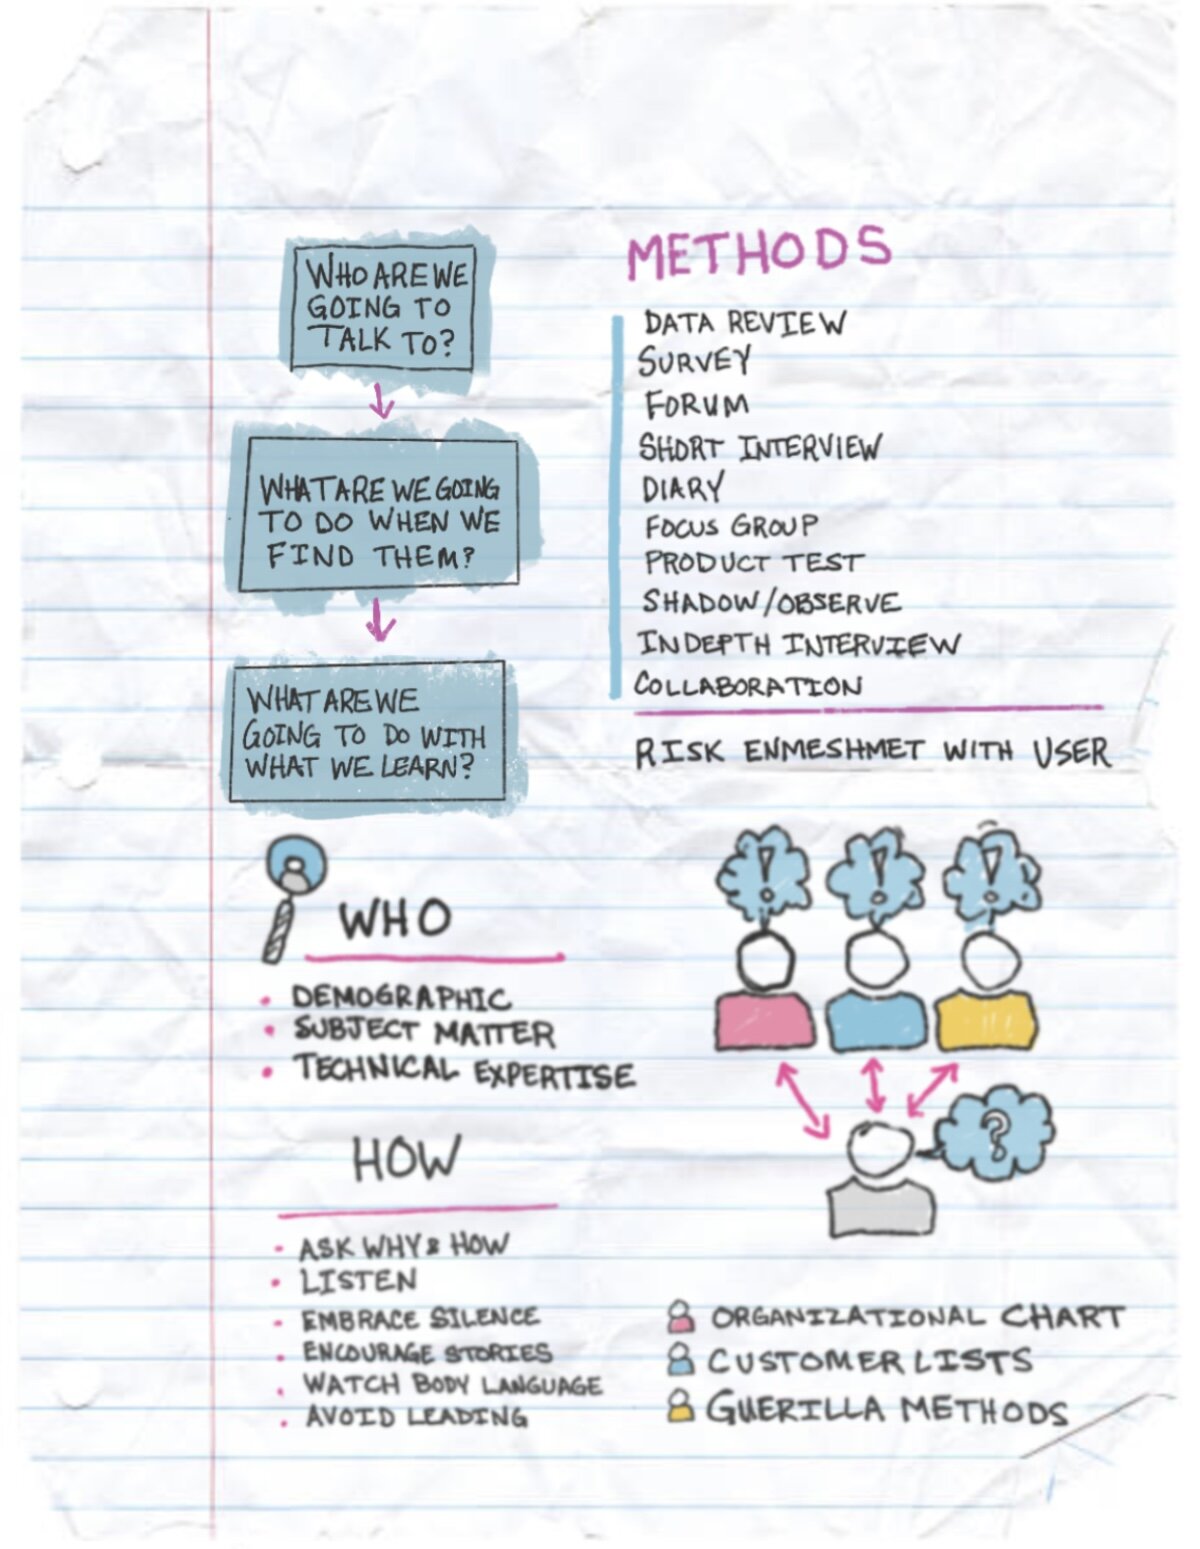 WHO ARE WE
GOING TO
TALK TO?
WHAT ARE WE GOING
TO DO WHEN WE
FIND THEM?
WHAT ARE WE
GOING TO DO WITH
WHAT WE LEARN?
METHODS
DATA REVIEW
SURVEY
FORUM
SHORT INTERVIEW
DIARY
FOCUS GROUP
PRODUCT TEST
SHADOW/OBSERVE
INDEPTH INTERVIEW
COLLABORATION
RISK ENMESHMET WITH USER
WHO
• DEMOGRAPHIC
• SUBJECT MATTER
• TECHNICAL EXPERTISE
! ! !
?
HOW
• ASK WHY & HOW
• LISTEN
• EMBRACE SILENCE
• ENCOURAGE STORIES
• WATCH BODY LANGUAGE
• AVOID LEADING
ORGANIZATIONAL CHART
CUSTOMER LISTS
GUERILLA METHODS